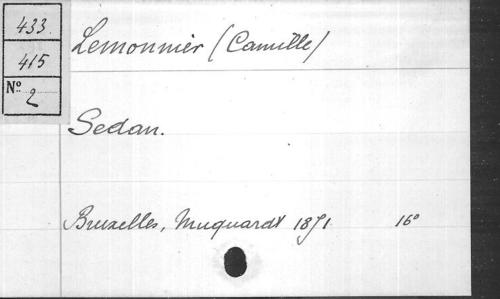 433.
415
No. 2
Lemonnier (Camille)
Sedan.
Bruxelles, Muquardt 1871 16°